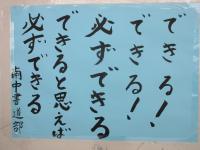 できる！
できる！、
必ずできる
できると思えば
必ずできる
南中書道部